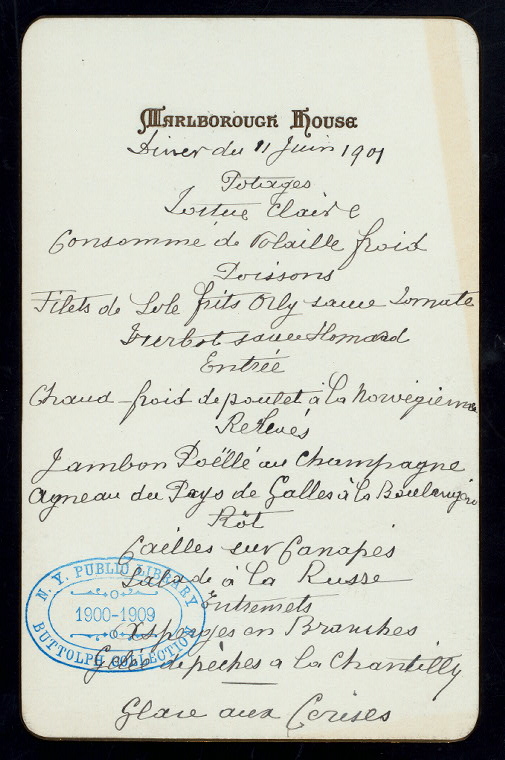 Marlborough House
Diner du 11 Juin 1901
Potages
Tortue Claire
Consommé de Volaille froid
Poissons
Filets de Sole frits Orly sauce Tomate
Turbot sauce Homard
Entrée
Chaud-froid de poulet à la Norvégienne
Relevés
Jambon Poëllé au Champagne
Agneau du Pays de Galles à la Boulangère
Rôt
Cailles sur Canapés
Salade à la Russe
Entremets
Asperges en Branches
Gelée de pêches a la Chantilly
Glace aux Cerises
N. Y. PUBLIC LIBRARY
1900-1909
BUTTOLPH COLLECTION